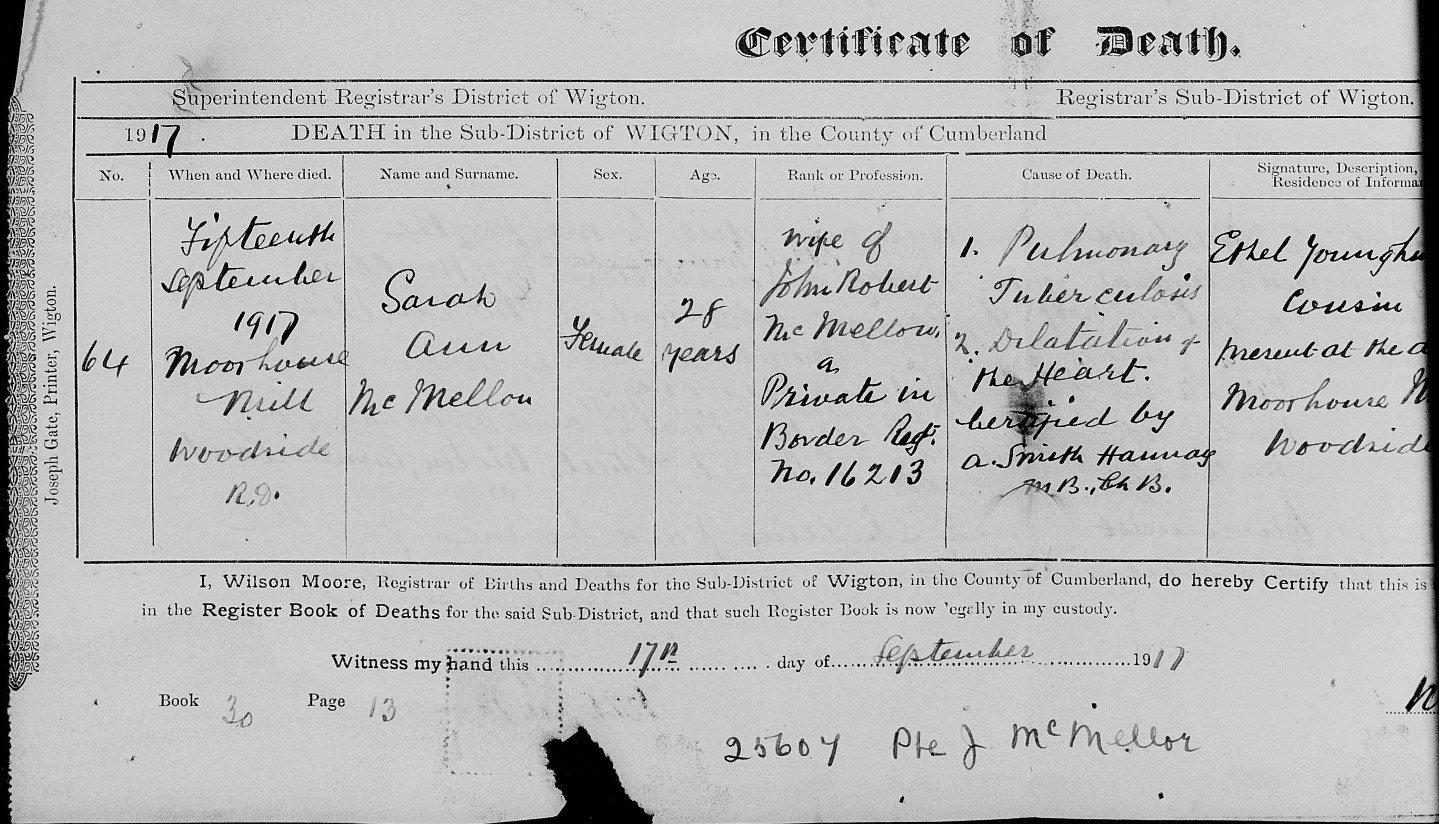 Certificate of Death.
Superintendent Registrar's District of Wigton.
Registrar's Sub-District of Wigton.
1917. DEATH in the Sub-District of WIGTON, in the County of Cumberland
No.
When and Where died.
Name and Surname.
Sex.
Age.
Rank or Profession.
Cause of Death.
Signature, Description,
Residence of Informa
64
Fifteenth
September
1917
Moorhouse
Mill
Woodside
R.D.
Sarah
Ann
Mc Mellon
Female
28
years
Wife of
John Robert
Mc Mellow,
a
Private in
Border Regt.
No. 16213
1. Pulmonary
Tuberculosis
2. Dilatation of
the Heart.
Certified by
A. Smith Hannay
M.B., Ch B.
Ethel
Cousin
Present at the d
Moorhouse M
Woodside
Joseph Gate, Printer, Wigton.
I, Wilson Moore, Registrar of Births and Deaths for the Sub-District of Wigton, in the County of Cumberland, do hereby Certify that this is
in the Register Book of Deaths for the said Sub-District, and that such Register Book is now legally in my custody.
Witness my hand this 17th day of September 1917
Book 30 Page 13
25607 Pte J McMellor